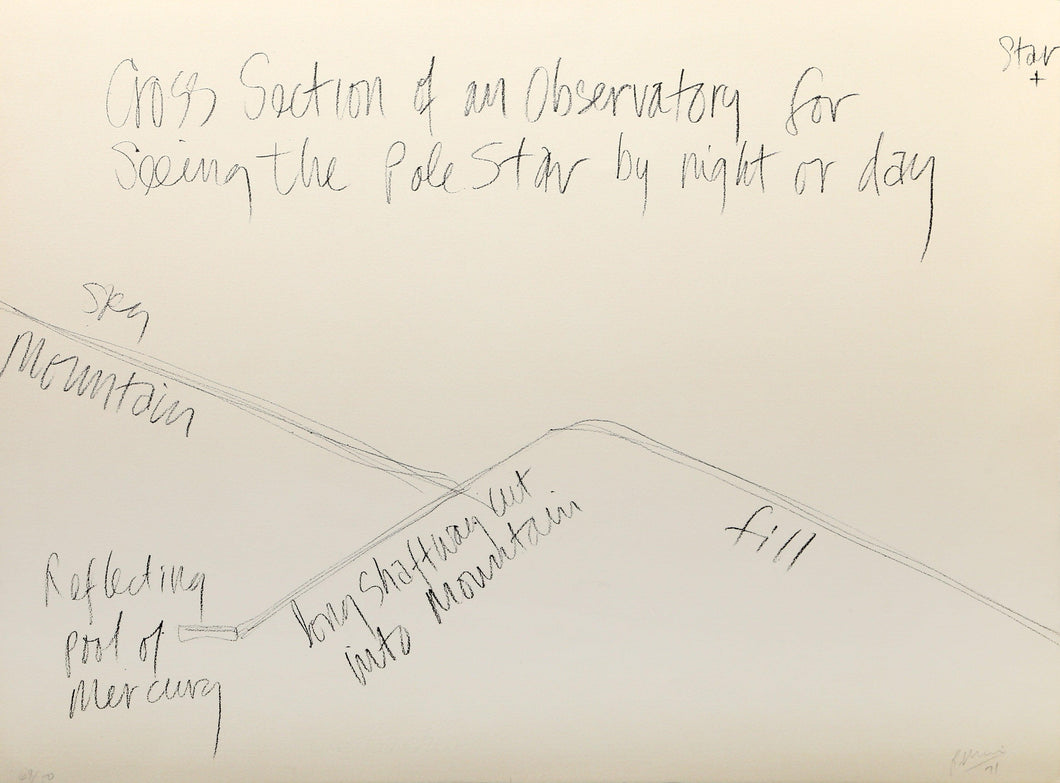 Star
+
Cross Section of an Observatory for
Seeing the Pole Star by night or day
Sky
Mountain
long shaftway cut
into Mountain
fill
Reflecting
pool of
Mercury
71